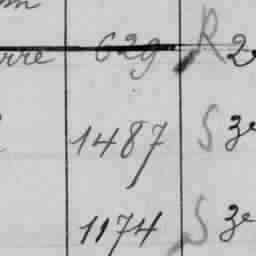 rre 629 R 2
1487 S 3e
1174 S 3e